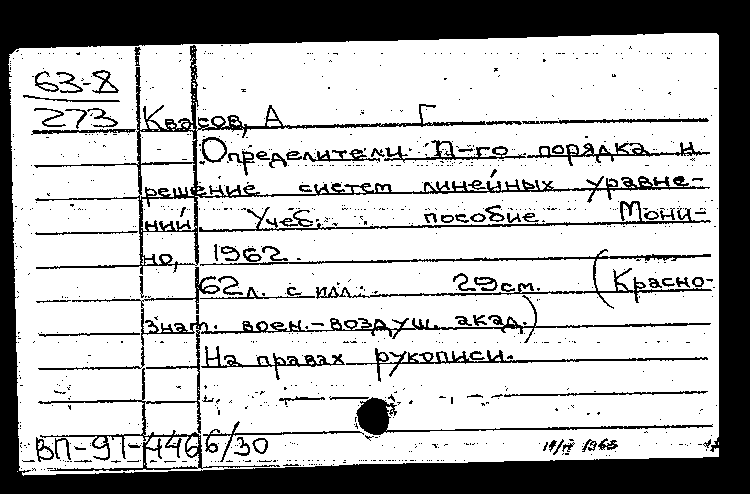 63-8
273 Квасов, А Г
Определители n-го порядка и
решение систем линейных уравне-
ний. Учеб. пособие. Мони-
но, 1962.
62 л. с илл. 29 см. (Красно-
знам. воен.-воздуш. акад.)
На правах рукописи.
ВП-91-4466/30